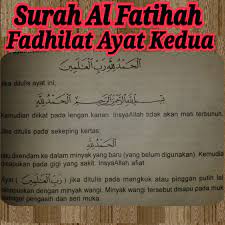 Surah Al Fatihah
Fadhilat Ayat Kedua
الْحَمْدُ لِلَّهِ رَبِّ الْعَالَمِينَ
Jika ditulis ayat ini,
بِسْمِ اللَّهِ الرَّحْمَنِ الرَّحِيمِ الْحَمْدُ لِلَّهِ
Kemudian diikat pada lengan kanan. InsyaAllah tidak akan mati terbunuh.
Jika ditulis pada sekeping kertas;
الْحَمْدُ لِلَّهِ
lalu direndam ke dalam minyak yang baru (yang belum digunakan). Kemudia
disapukan pada gigi yang sakit. InsyaAllah afiat
Ayat (رَبِّ الْعَالَمِينَ) jika ditulis pada mangkuk atau pinggan putih lal
dihapuskan dengan minyak wangi. Minyak wangi tersebut disapu pada muk
sebagai pengasih dan seri muka.